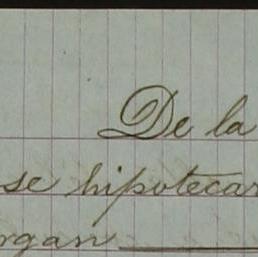 De la
se hipotecar
rgan